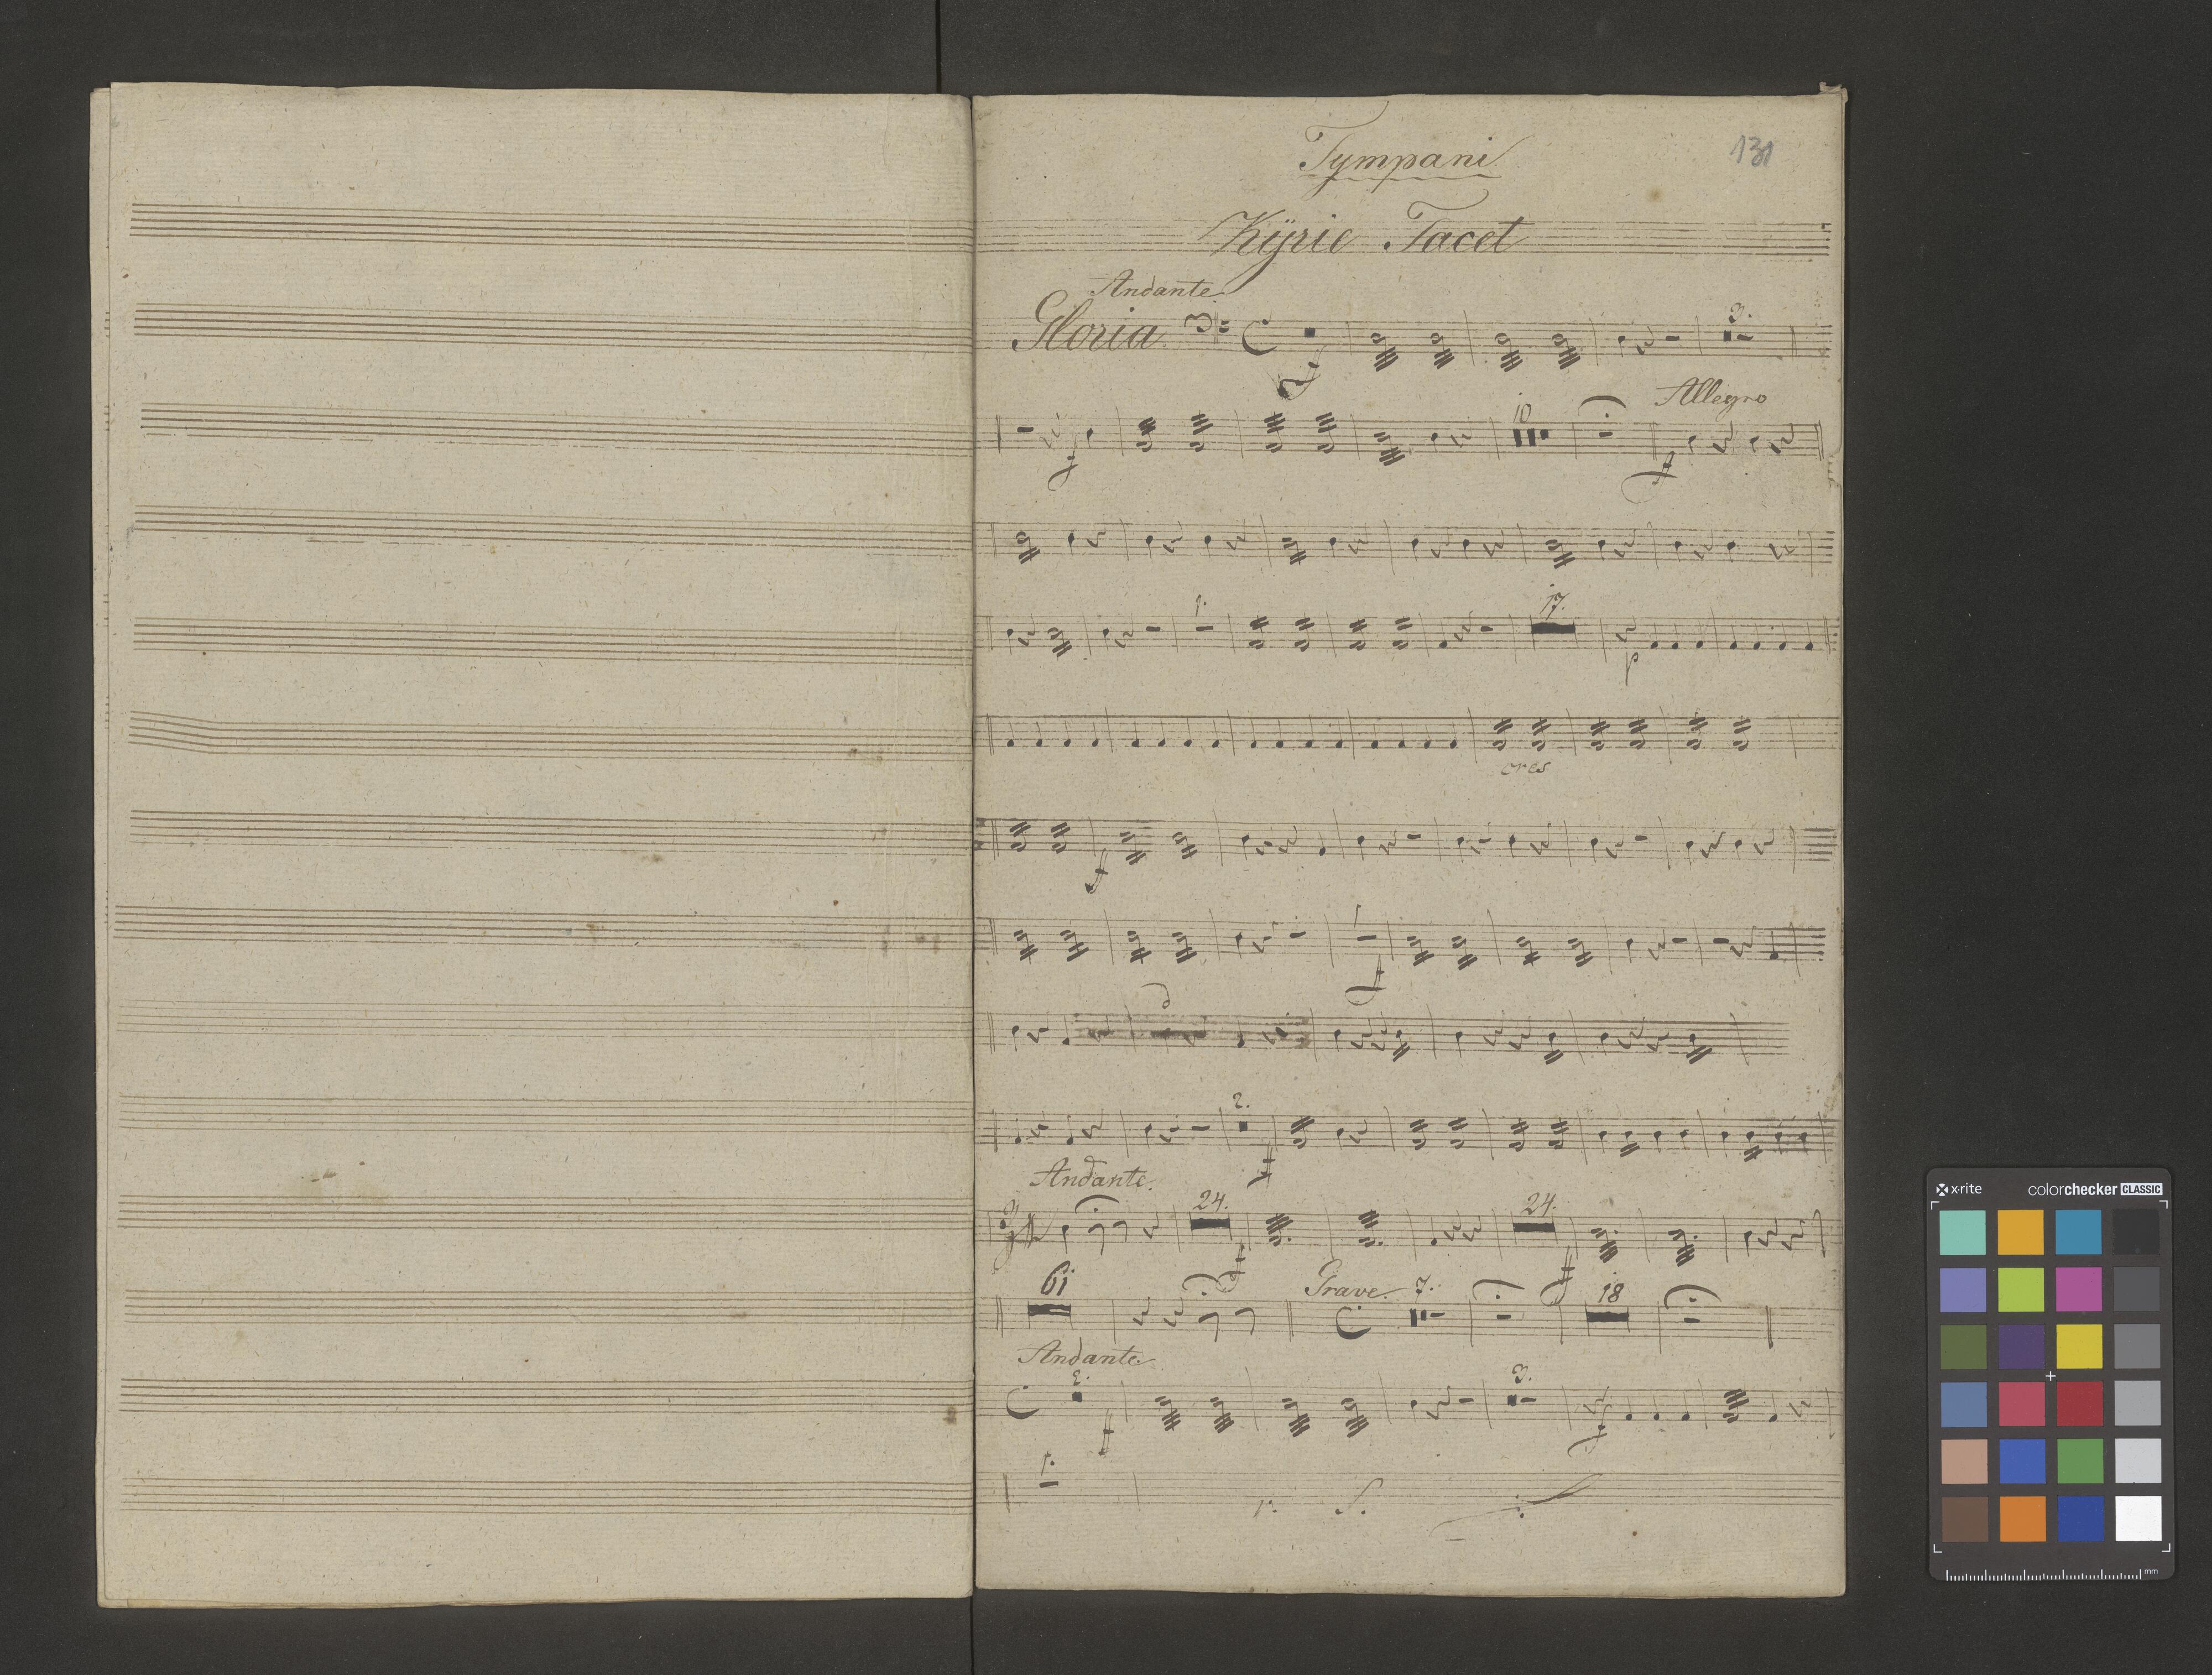 Tympani
131
Kÿrie Tacet
Andante.
Gloria
3.
10
Allegro
f
f
1.
17.
p
cres
f
1
f
2.
f
Andante.
24.
24.
f
f
61
Grave. 7.
18
Andante
2.
3.
f
f
1.
x-rite
colorchecker CLASSIC
mm